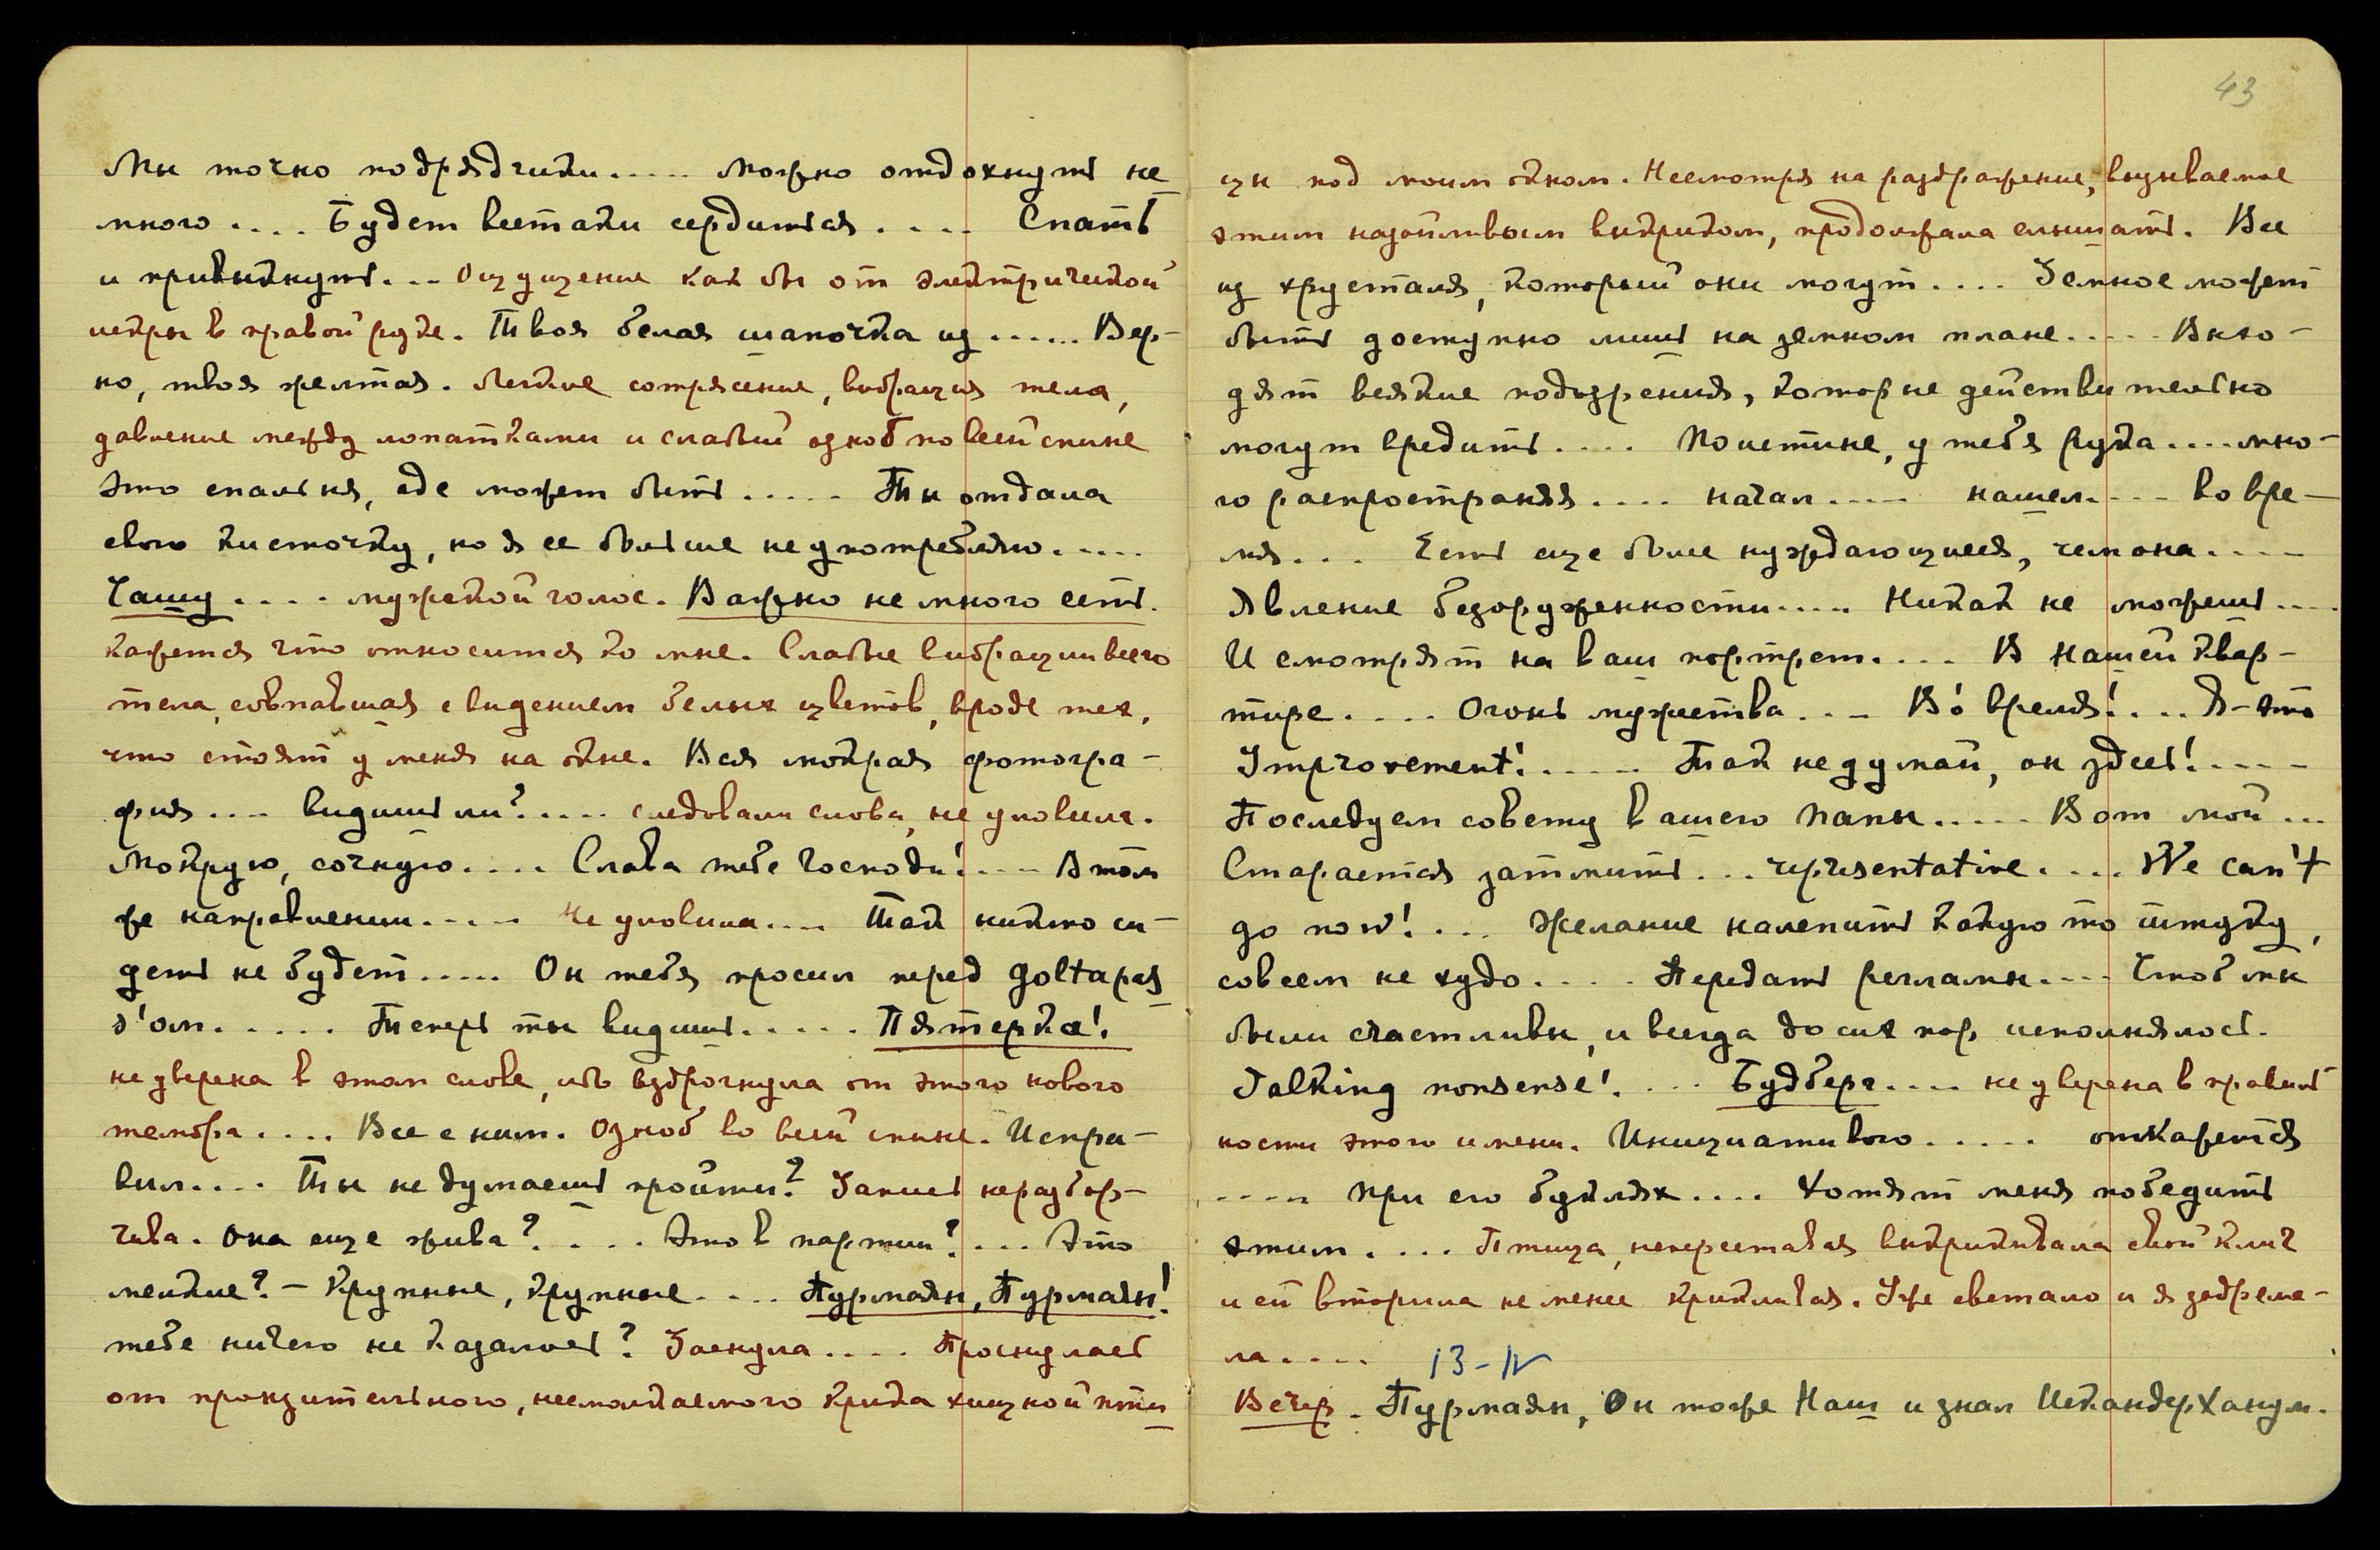 Мы точно подрядчики..... Можно отдохнуть не
много.... Будет всетаки сердиться.... Спать
и привыкнуть... Ощущение как бы от электрической
искры в правой руке. Твоя белая шапочка из...... Вер-
но, твоя желтая. Легкие сотрясение, вибрация тела,
давление между лопатками и слабый озноб по всей спине
Это спальня, где может быть..... Ты отдала
свою кисточку, но я ее больше не употребляю.....
Чашу.... мужской голос. Важно не много есть.
Кажется что относится ко мне. Слабые вибрации всего
тела, совпавшая с видением белых цветов, вроде тех,
что стоят у меня на окне. Вся мокрая фотогра-
фия.... видишь ли?.... следовали слова, не уловила.
Мокрую, сочную.... Слава тебе Господи!.... В том
же направлении..... Не уловила.... Так никто си-
деть не будет..... Он тебя просил перед
э'ом..... Теперь ты видишь..... Пятерка!
не уверена в этом слове, ибо вздрогнула от этого нового
тембра.... Все с ним. Озноб во всей спине. Испра-
вил.... Ты не думаешь пройти? Запись неразбор-
чива. Она еще жива?.... Это в партии?... Это
мелкие? – Крупные, крупные.... Пурмаян, Пурмаян!
тебе ничего не казалось? Заснула.... Проснулась
от пронзительного, несмолкаемого крика хищной пти
43
цы под моим окном. Несмотря на раздражение, вызываемое
этим назойливым выкриком, продолжала слышать. Все
из хрусталя, который они могут.... Земное может
быть доступно лишь на земном плане..... Вихо-
дят всякие подозрения, которые действительно
могут вредить.... Поистине, у тебя рука.... мно-
го распространяя.... начал.... нашел.... во вре-
мя... Есть еще более нуждающиеся, чем она....
Явление безоруженности..... Никак не можешь....
И смотрят на ваш портрет.... В нашей квар-
тире.... Огонь мужества... Во́ время!.... Я-это
Improvement!..... Так не думай, он здесь!....
Последуем совету вашего папы..... Вот мой...
Старается затмить... representative.... We can't
do now!... Желание налепить какую то штуку,
совсем не худо.... Передать рекламы.... Чтоб мы
были счастливы, и всегда до сих пор исполнялось.
Talking nonsense!.... Будберг.... не уверена в правиль
ности этого имени. Инициативою..... откажется
..... при его буклях.... Хотят меня победить
этим.... Птица, непереставая выкрикивала свой клич
и ей вторила не менее крикливая. Уже светало и я задрема-
ла..... 13-IV
Вечер. Пурмаян, Он тоже Наш и знал Искандер Ханум.